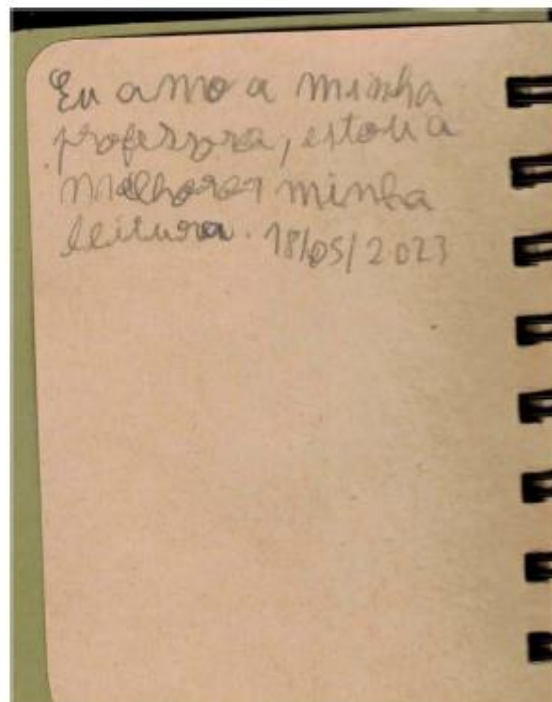 Eu amo a minha
professora, estou a
melhorar minha
leitura. 18/05/2023